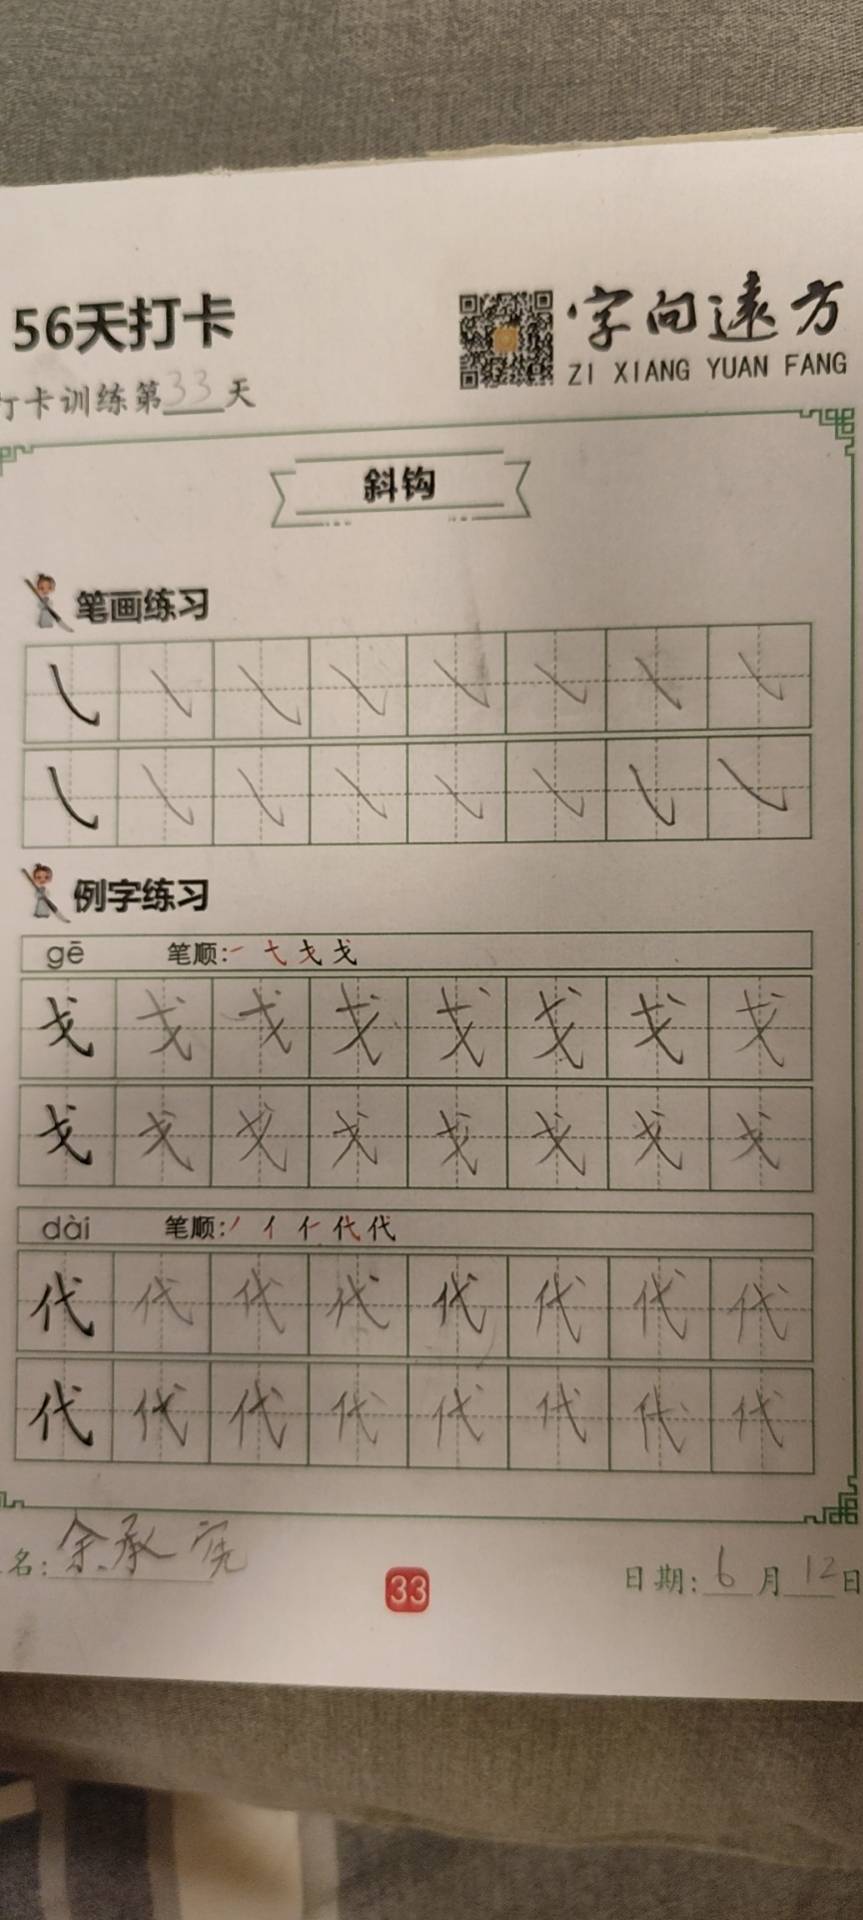 56天打卡
字向远方
ZI XIANG YUAN FANG
打卡训练第33天
斜钩
笔画练习
㇂
㇂
例字练习
gē 笔顺:一 弋 戈 戈
戈 戈 戈 戈 戈 戈 戈 戈
戈 戈 戈 戈 戈 戈 戈 戈
dài 笔顺:丿 亻 仁 代 代
代 代 代 代 代 代 代 代
代 代 代 代 代 代 代 代
名:余承宪
33
日期:6月12日